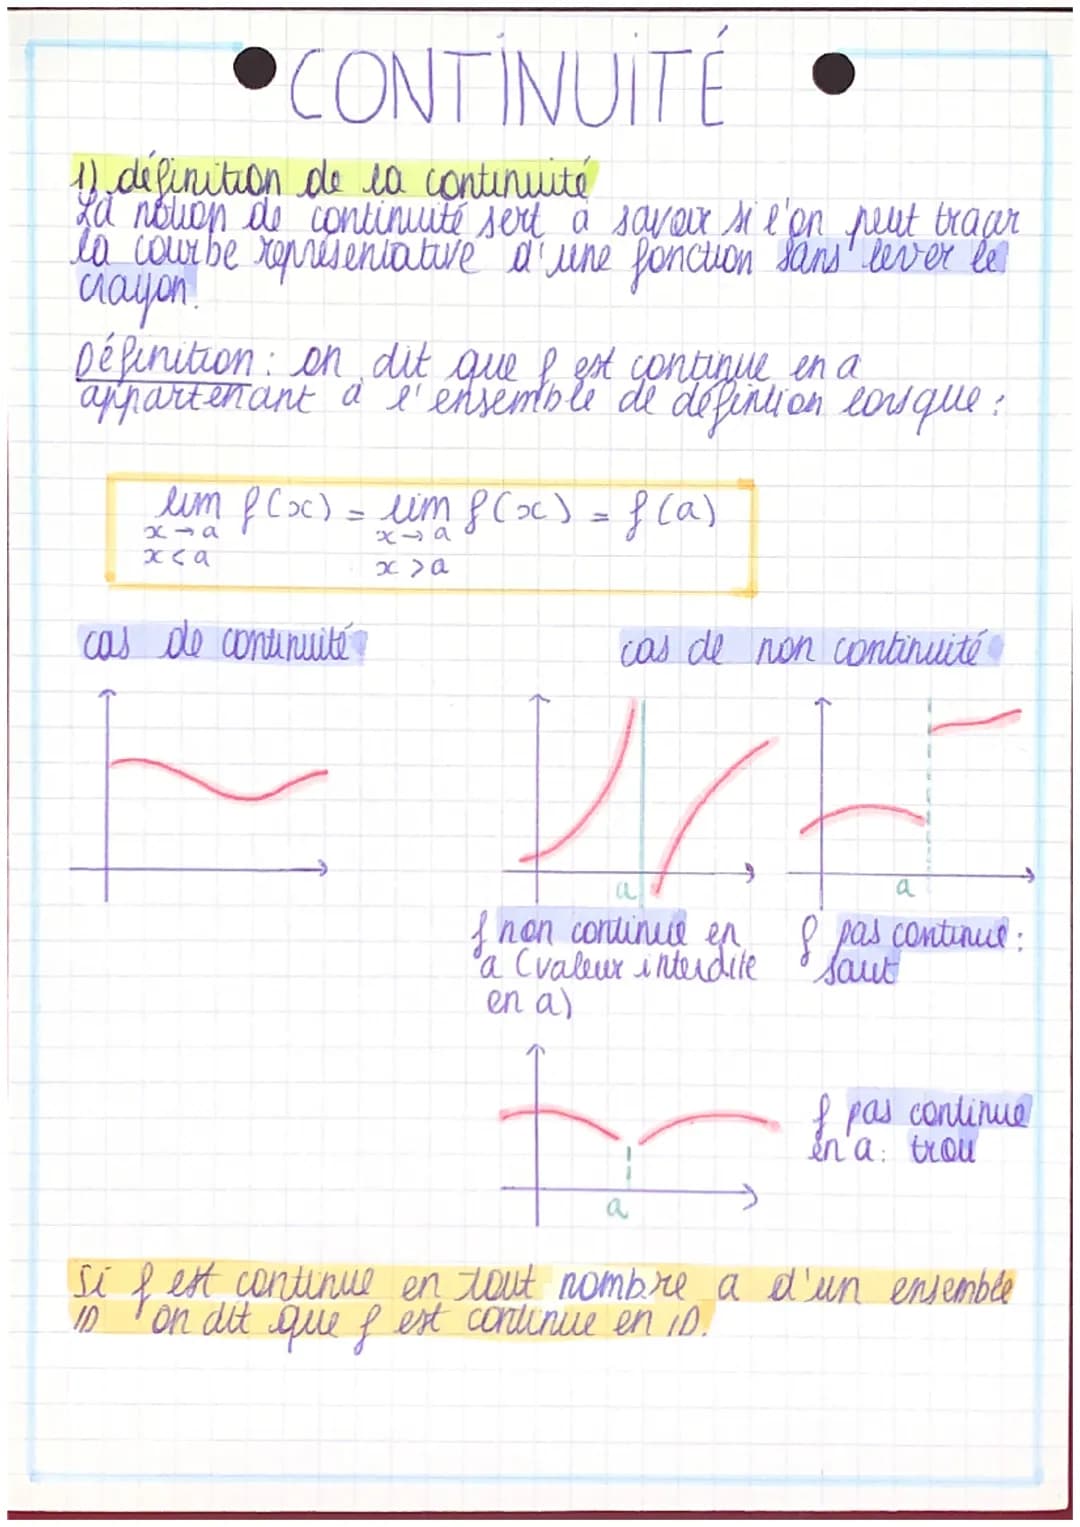 CONTINUITÉ
1) définition de la continuité
La notion de continuité sert à savoir si l'on peut tracer
la courbe représentative d'une fonction sans lever le
crayon.
Définition : on dit que f est continue en a
appartenant à l'ensemble de défintion lorsque :
lim f(x) = lim f(x) = f(a)
x→a x→a
x<a x>a
cas de continuité
cas de non continuité
a
a
f non continue en
a (valeur interdite
en a)
f pas continue :
saut
f pas continue
en a : trou
a
Si f est continue en tout nombre a d'un ensemble
ID on dit que f est continue en ID.